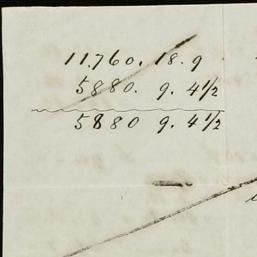 11,760. 18. 9
5880. 9. 4 1/2
5880 9. 4 1/2